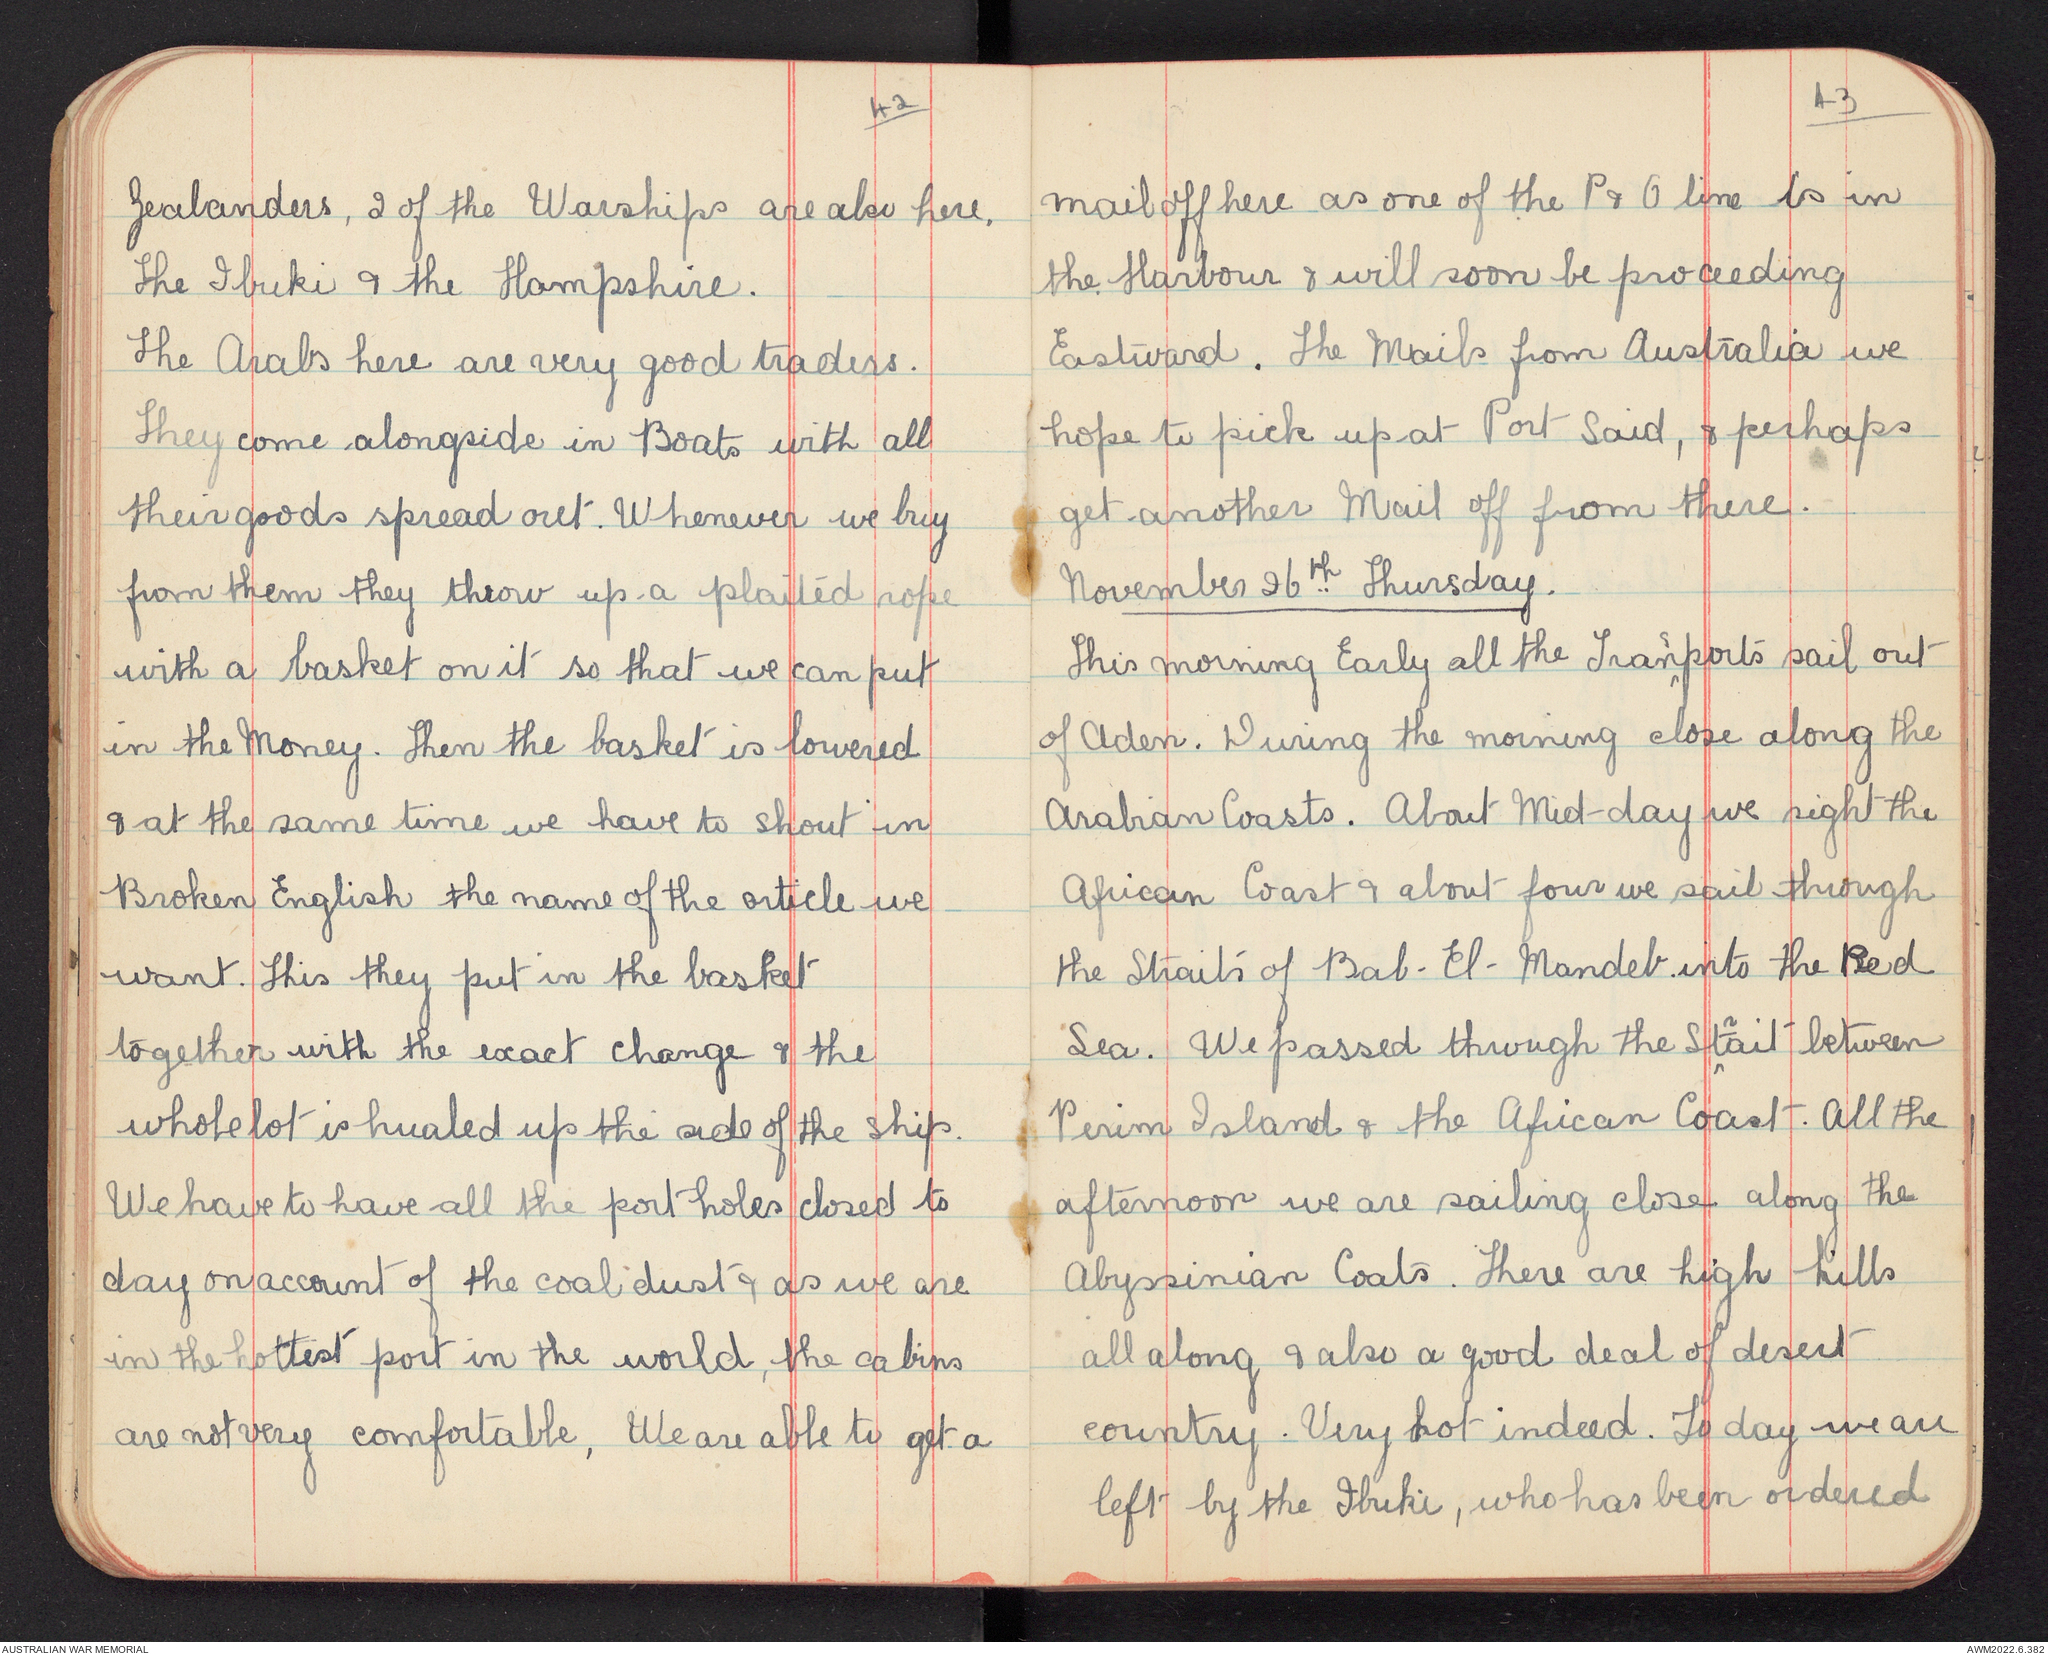 42
Zealanders, 2 of the Warships are also here,
The Ibuki & the Hampshire.
The Arabs here are very good traders.
They come alongside in Boats with all
their goods spread out. Whenever we buy
from them they throw up a plaited rope
with a basket on it so that we can put
in the Money. Then the basket is lowered
& at the same time we have to shout in
Broken English the name of the article we
want. This they put in the basket
together with the exact change & the
whole lot is hualed up the side of the ship.
We have to have all the port holes closed to
day on account of the coal dust & as we are
in the hottest port in the world, the cabins
are not very comfortable, We are able to get a
43
mail off here as one of the P & O line is in
the Harbour & will soon be proceeding
Eastward. The Mails from Australia we
hope to pick up at Port Said, & perhaps
get another Mail off from there.
November 26th Thursday.
This morning Early all the Transports sail out
of Aden. During the morning close along the
Arabian Coasts. About Mid-day we sight the
African Coast & about four we sail through
the Straits of Bab-El-Mandeb into the Red
Sea. We passed through the Strait between
Perim Island & the African Coast. All the
afternoon we are sailing close along the
Abyssinian Coats. There are high hills
all along & also a good deal of desert
country. Very hot indeed. To day we are
left by the Ibuki, who has been ordered
AUSTRALIAN WAR MEMORIAL
AWM2022.6.382